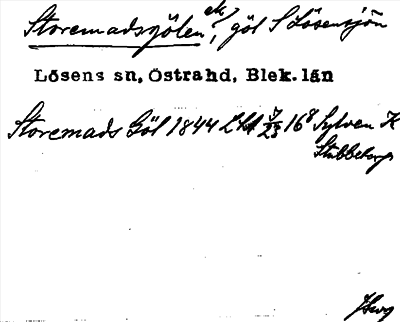 Storemadsgölen, göl S Lösensjön
Lösens sn, Östrahd, Blek. län
Storemads Göl 1844 Lht 16⁸ Sylven K
Stubbetorp